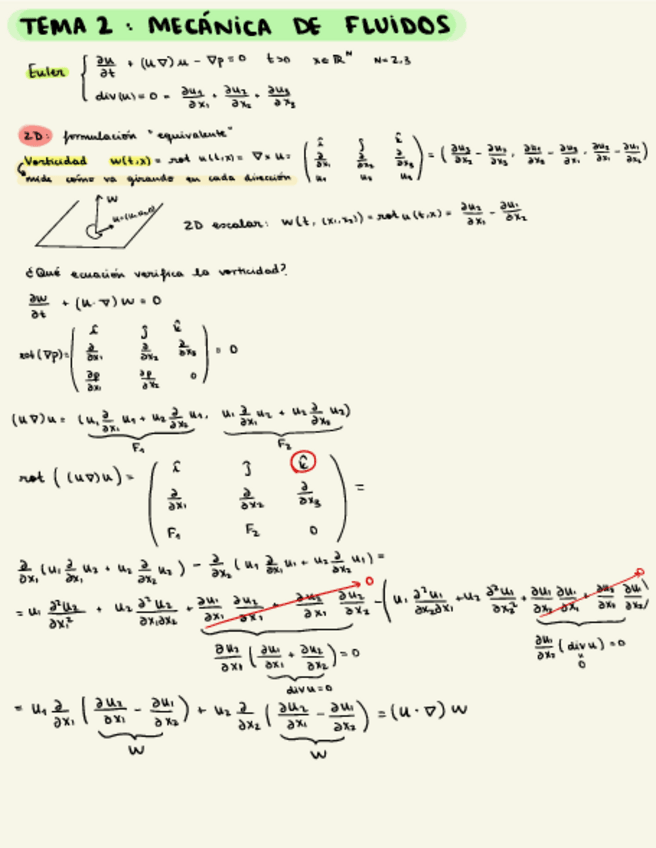 TEMA 2 : MECÁNICA DE FLUIDOS
Euler { ∂u/∂t + (u∇)u - ∇p = 0 t>0 x∈ℝᴺ N=2,3
div(u)=0 = ∂u₁/∂x₁ + ∂u₂/∂x₂ + ∂u₃/∂x₃
2D: formulación "equivalente"
Vorticidad w(t,x) = rot u(t,x) = ∇×u = ( î ĵ k̂ ; ∂/∂x₁ ∂/∂x₂ ∂/∂x₃ ; u₁ u₂ u₃ ) = ( ∂u₃/∂x₂ - ∂u₂/∂x₃ , ∂u₁/∂x₃ - ∂u₃/∂x₁ , ∂u₂/∂x₁ - ∂u₁/∂x₂ )
mide cómo va girando en cada dirección
w
2D escalar: w(t, (x₁,x₂)) = rot u(t,x) = ∂u₂/∂x₁ - ∂u₁/∂x₂
¿Qué ecuación verifica la vorticidad?
∂w/∂t + (u·∇) w = 0
rot(∇p) = ( î ĵ k̂ ; ∂/∂x₁ ∂/∂x₂ ∂/∂x₃ ; ∂p/∂x₁ ∂p/∂x₂ 0 ) = 0
(u∇)u = (u₁ ∂/∂x₁ u₁ + u₂ ∂/∂x₂ u₁, u₁ ∂/∂x₁ u₂ + u₂ ∂/∂x₂ u₂)
F₁ F₂
rot ( (u∇)u ) = ( î ĵ k̂ ; ∂/∂x₁ ∂/∂x₂ ∂/∂x₃ ; F₁ F₂ 0 ) =
∂/∂x₁ (u₁ ∂/∂x₁ u₂ + u₂ ∂/∂x₂ u₂) - ∂/∂x₂ (u₁ ∂/∂x₁ u₁ + u₂ ∂/∂x₂ u₁) =
= u₁ ∂²u₂/∂x₁² + u₂ ∂²u₂/∂x₁∂x₂ + ∂u₁/∂x₁ ∂u₂/∂x₁ + ∂u₂/∂x₁ ∂u₂/∂x₂ 0 - ( u₁ ∂²u₁/∂x₂∂x₁ + u₂ ∂²u₁/∂x₂² + ∂u₁/∂x₂ ∂u₁/∂x₁ + ∂u₂/∂x₂ ∂u₁/∂x₂ ) 0
∂u₂/∂x₁ ( ∂u₁/∂x₁ + ∂u₂/∂x₂ ) = 0 ∂u₁/∂x₂ (div u) = 0
div u = 0 0
= u₁ ∂/∂x₁ ( ∂u₂/∂x₁ - ∂u₁/∂x₂ ) + u₂ ∂/∂x₂ ( ∂u₂/∂x₁ - ∂u₁/∂x₂ ) = (u·∇) w
w w